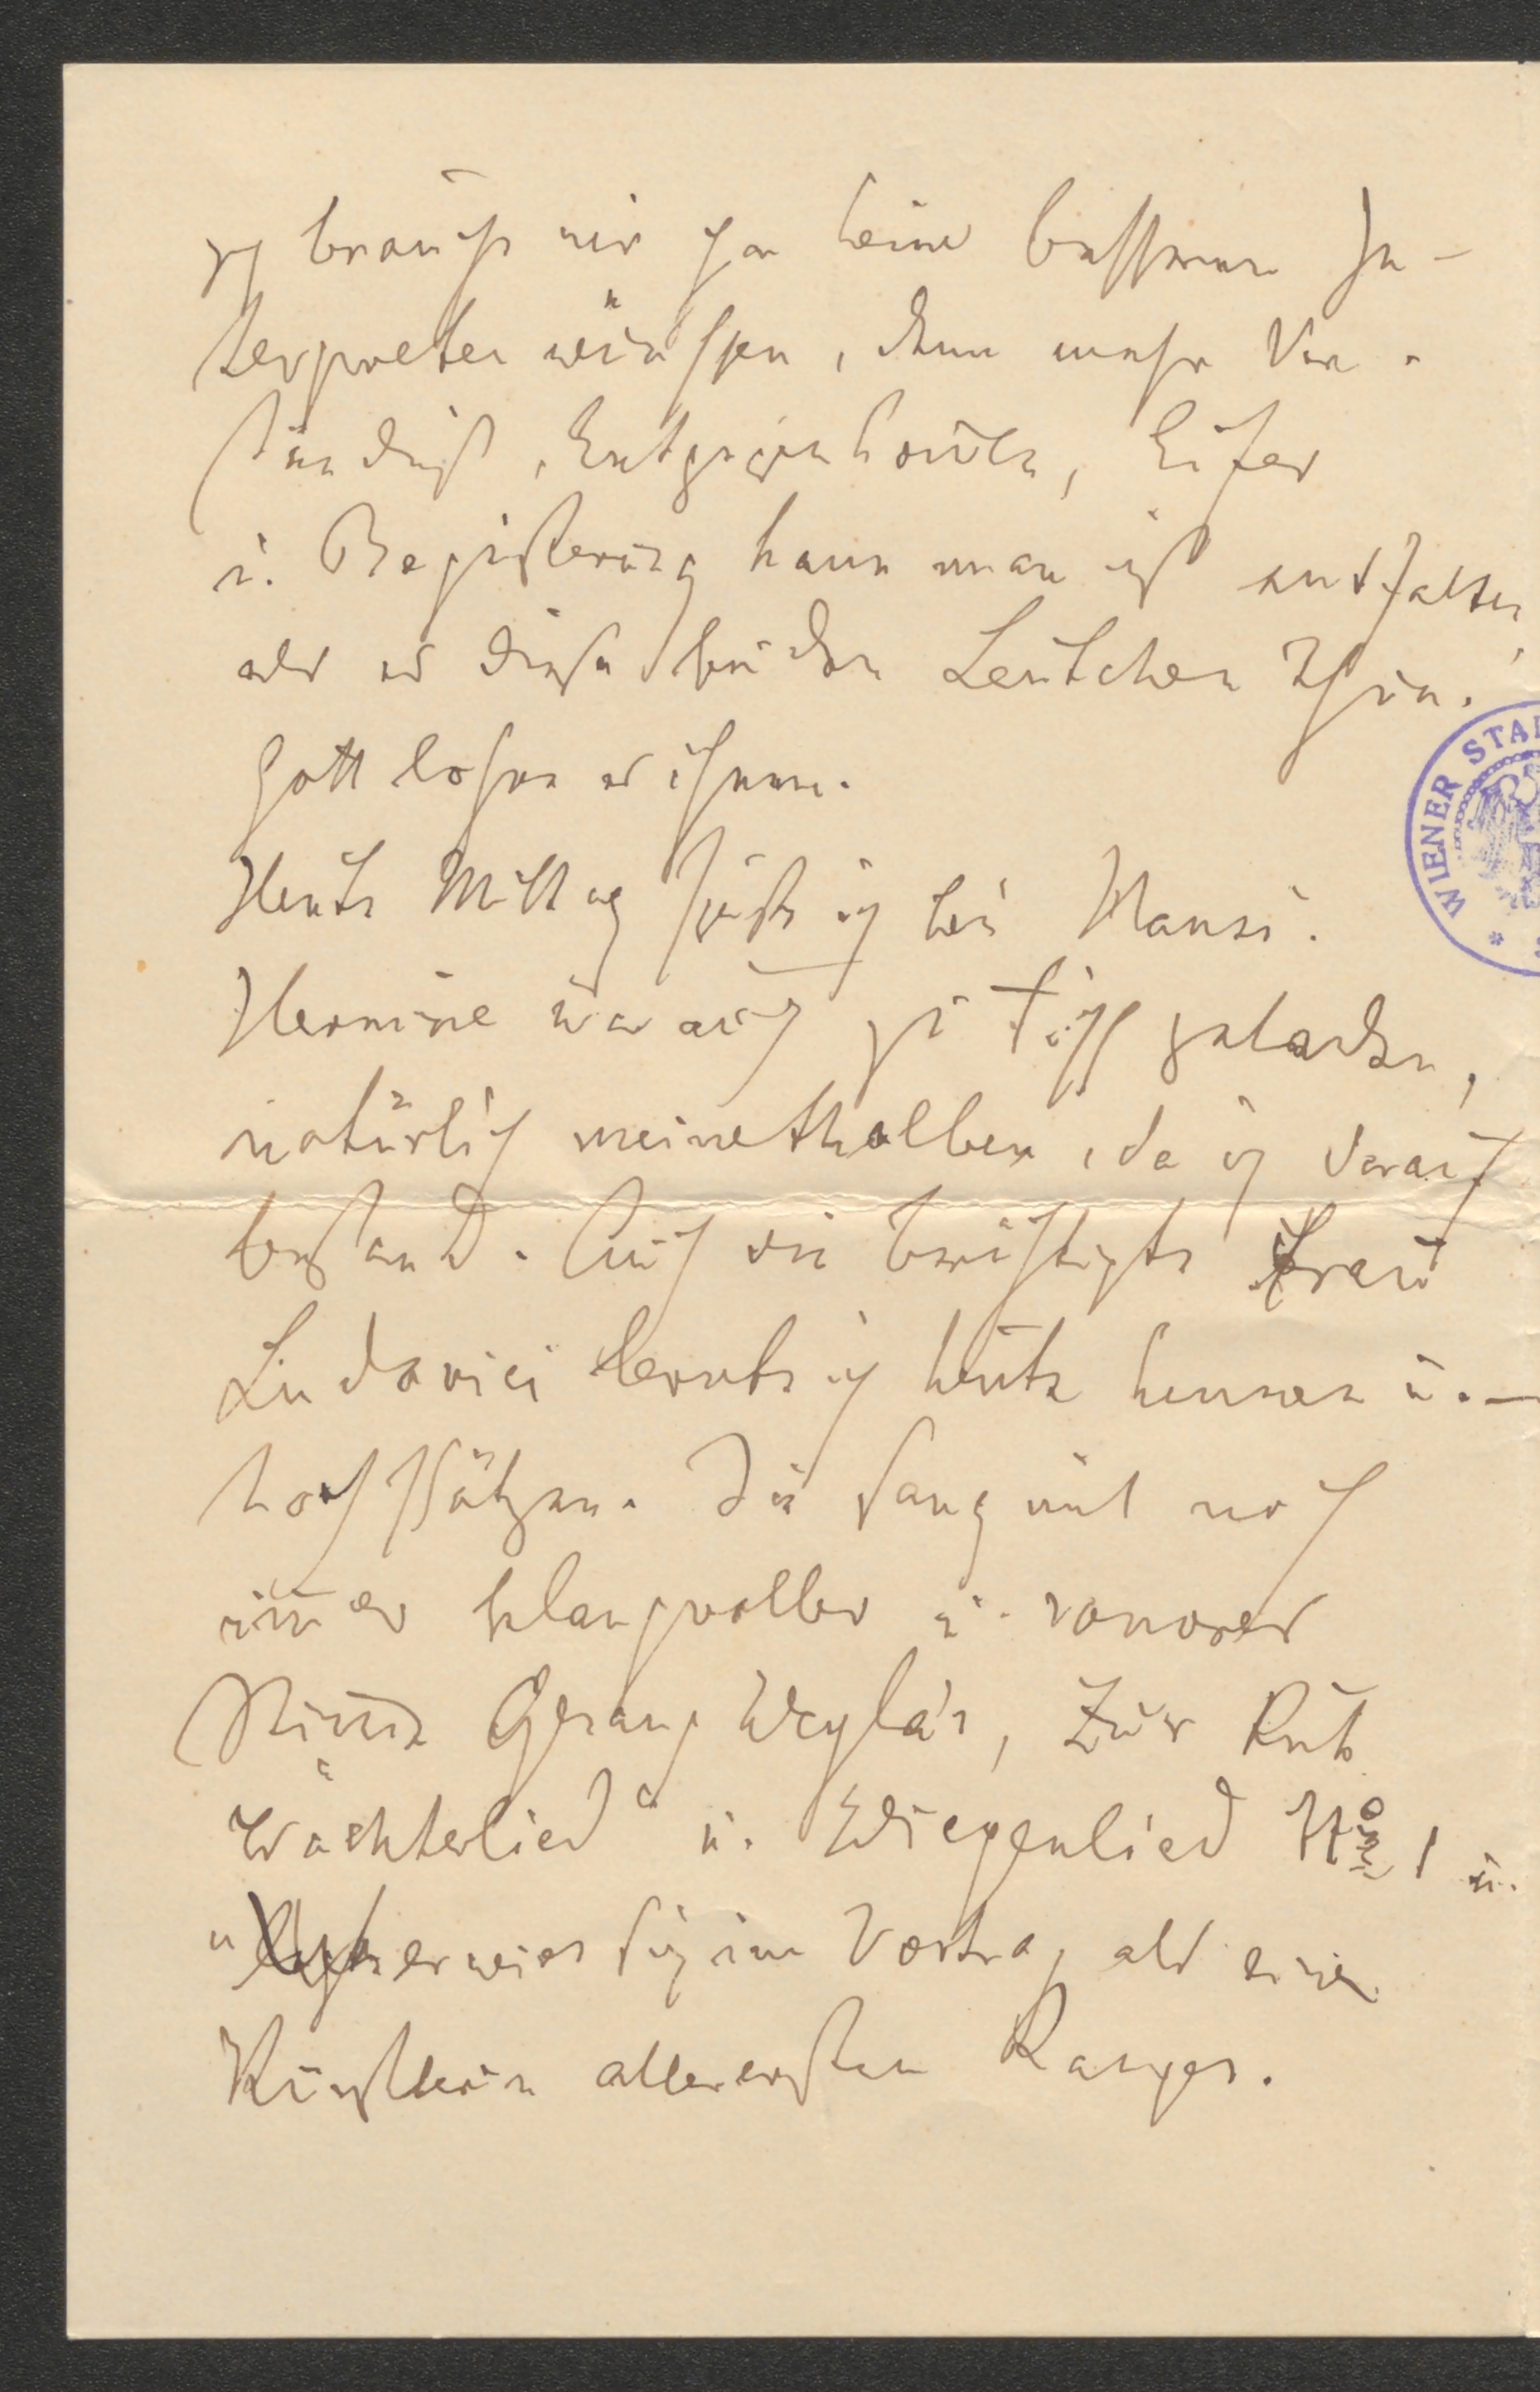 ich brauch mir ja keine besseren In-
terpreten wünschen, denn mehr Ver-
ständniß, Entgegenkomm, Eifer
u. Begeisterung kann man nicht entfalten,
als es diese beiden Leutchen thun.
Gott lohne es ihnen.
Heute Mittag speiste ich bei Mansi.
Hermine war auch zu Tisch geladen,
natürlich meinethalben, da ich darauf
bestand. Auch die berühmte Frau
Ludovici lernte ich heute kennen u. –
hochschätzen. Sie sang mit noch
immer klangvoller u. sonorer
Stimme Gesang Weyla's, Zur Ruh
Wächterlied u. Wiegenlied No 1 u.
erwies sich im Vortrag als eine
Künstlerin allerersten Ranges.
WIENER STA